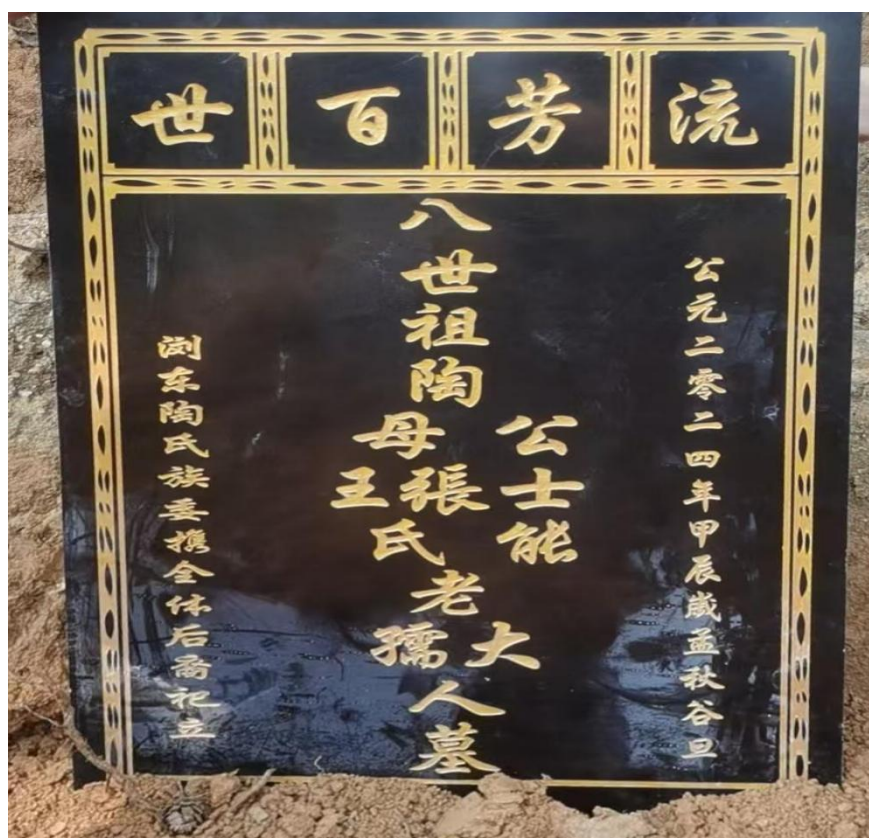 流芳百世
公元二零二四年甲辰歲孟秋谷旦
八世祖陶
公士能
母張王氏
老
大孺
人墓
浏东陶氏族委携全体后裔祀立